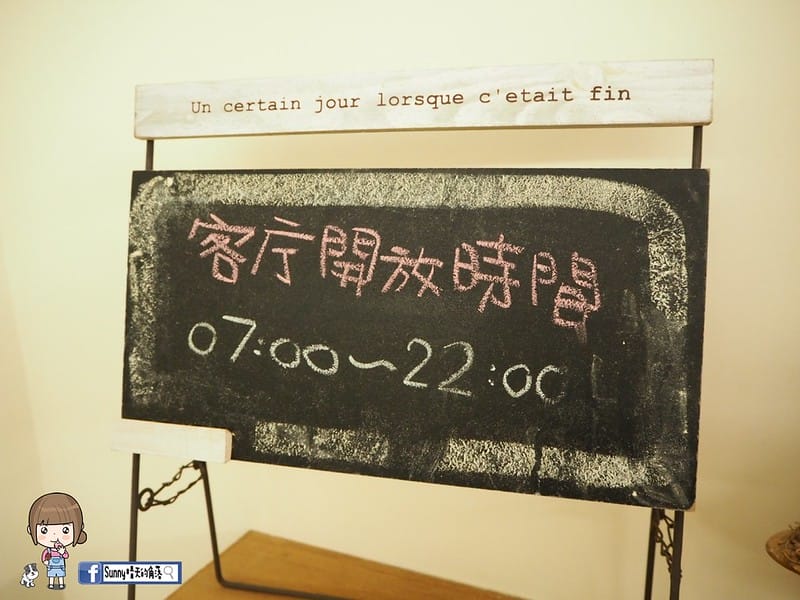 Un certain jour lorsque c'etait fin
客庁開放時間
07:00~22:00
Sunny晴天的角落